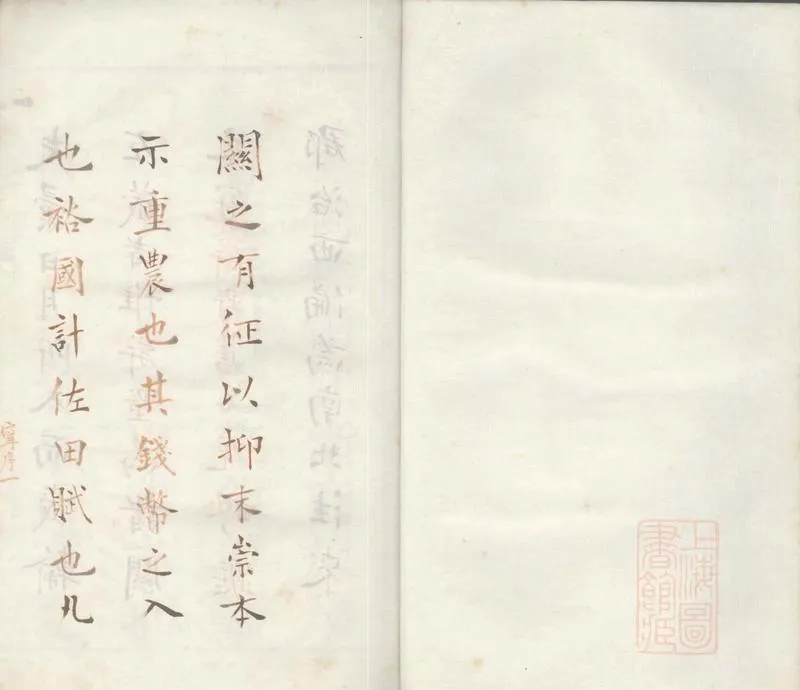 上海圖
書館藏
關之有征以抑末崇本
示重農也其錢幣之入
也裕國計佐田賦也凡
寧序一